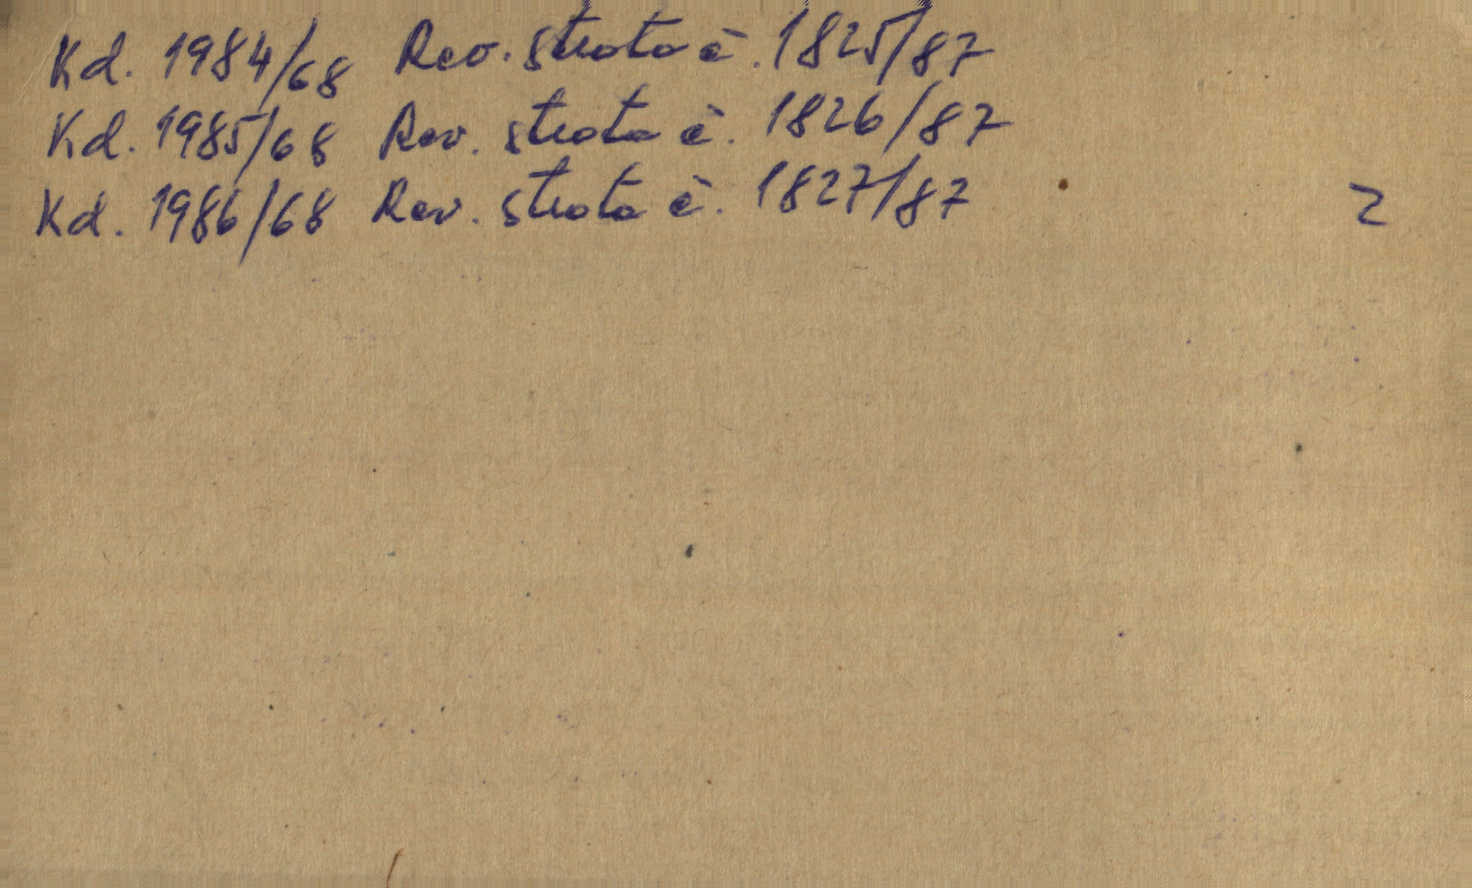 Kd. 1984/68 Rev. strata č. 1825/87
Kd. 1985/68 Rev. strata č. 1826/87
Kd. 1986/68 Rev. strata č. 1827/87
2